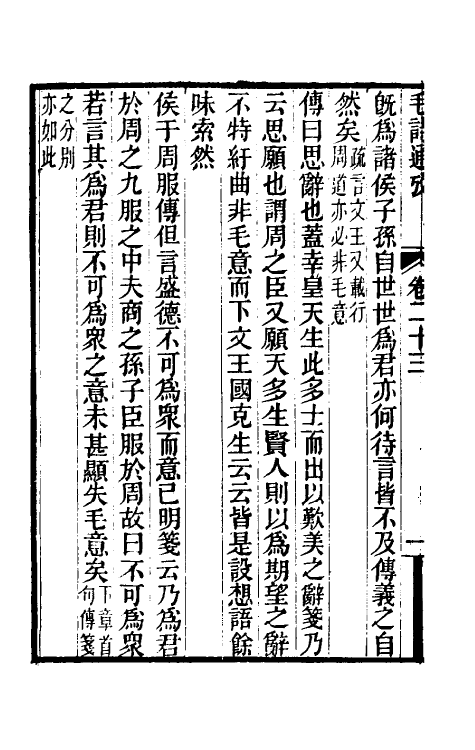 毛詩通攷　卷二十三　一
既為諸侯子孫自世世為君亦何待言皆不及傳義之自
然矣疏言文王又載行周道亦必非毛意
傳曰思辭也蓋幸皇天生此多士而出以歎美之辭箋乃
云思願也謂周之臣又願天多生賢人則以為期望之辭
不特紆曲非毛意而下文王國克生云云皆是設想語餘
味索然
侯于周服傳但言盛德不可為眾而意已明箋云乃為君
於周之九服之中夫商之孫子臣服於周故曰不可為眾
若言其為君則不可為眾之意未甚顯失毛意矣下章首句傳箋
之分別亦如此